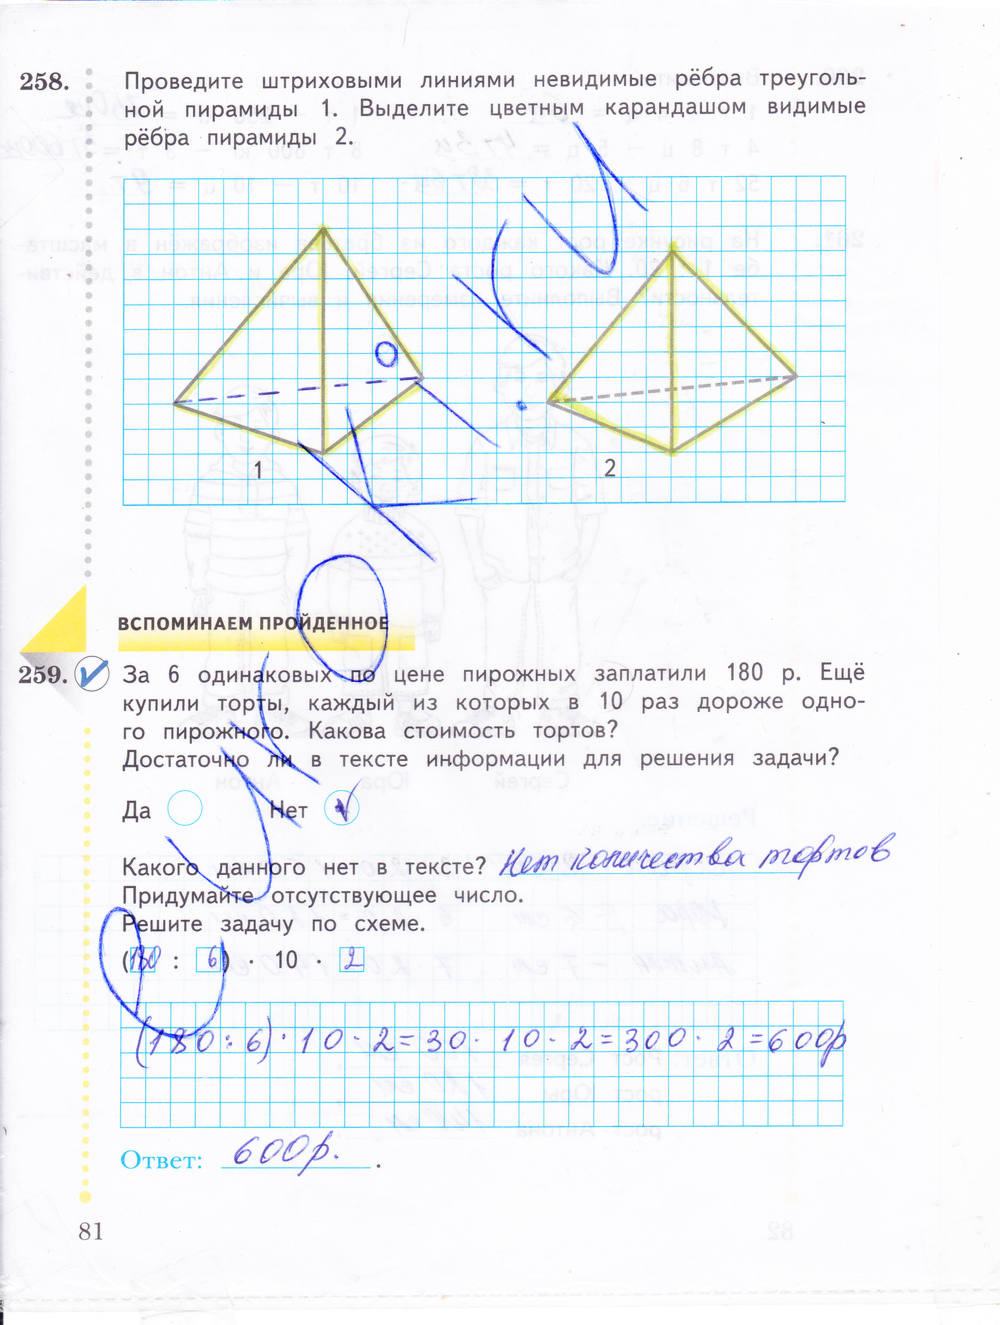 258. Проведите штриховыми линиями невидимые рёбра треуголь-
ной пирамиды 1. Выделите цветным карандашом видимые
рёбра пирамиды 2.
1
2
ВСПОМИНАЕМ ПРОЙДЕННОЕ
259. За 6 одинаковых по цене пирожных заплатили 180 р. Ещё
купили торты, каждый из которых в 10 раз дороже одно-
го пирожного. Какова стоимость тортов?
Достаточно ли в тексте информации для решения задачи?
Да Нет
Какого данного нет в тексте? Нет количества тортов
Придумайте отсутствующее число.
Решите задачу по схеме.
(180 : 6) · 10 · 2
(180:6)·10·2=30·10·2=300·2=600р
Ответ: 600р. .
81